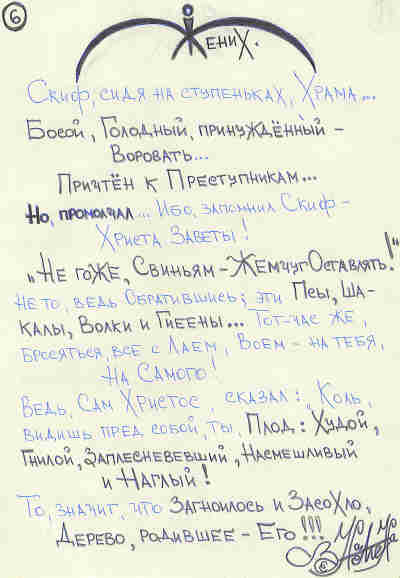 6
ЖениХ.
Скиф, сидя на ступеньках, Храма...
Босой, Голодный, принуждённый –
Воровать...
Причтён к Преступникам...
Но, промолчал... Ибо, запомнил Скиф –
Христа Заветы!
„Не гоже, Свиньям – Жемчуг Оставлять!"
Не то, ведь Обратившись; эти Псы, Ша-
калы, Волки и Гиеены... Тот-час же,
Бросяться, все с Лаем, Воем – на тебя,
На Самого!
Ведь, Сам Христос, сказал: „Коль,
видишь пред собой, ты, Плод: Худой,
Гнилой, Заплесневевший, Насмешливый
и Наглый!
То, значит, что Загноилось и Засохло,
Дерево, родившее – Его!!!